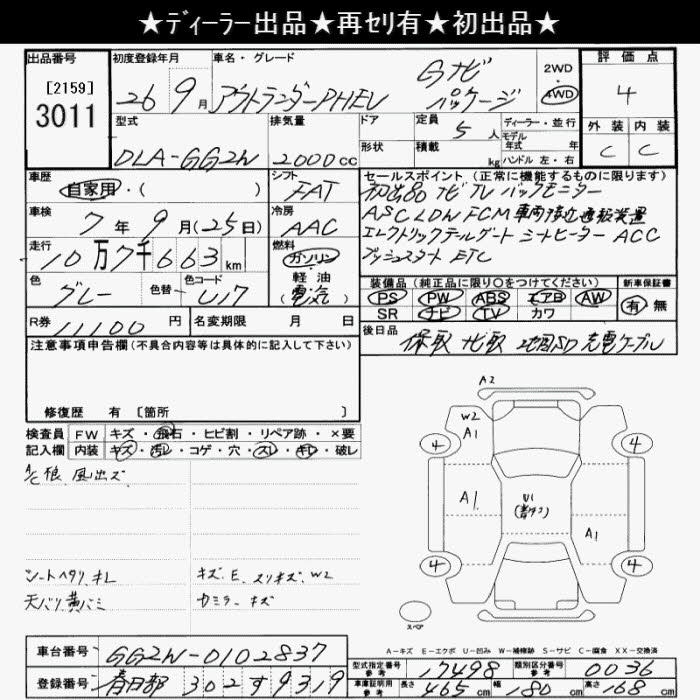 ★ディーラー出品★再セリ有★初出品★
出品番号 初度登録年月 車名・グレード 2WD 評価点
[2159] 26 9月 アウトランダーPHEV Gナビパッケージ 4WD 4
3011
型式 排気量 ドア 定員 5人 ディーラー・並行 外装 内装
モデル年式 年
DLA-GG2W 2000cc 形状 積載 kg ハンドル 左・右 C C
車歴 シフト セールスポイント(正常に機能するものに限ります)
自家用・( ) FAT 初出品 ナビ TV バックモニター
車検 冷房 ASC LDW FCM 車両接近通報装置
7年 9月(25日) AAC エレクトリックテールゲート シートヒーター ACC
走行 燃料 プッシュスタート ETC
10万7千663km ガソリン
軽油
電気
色 色替 色コード 装備品(純正品に限り○をつけてください) 新車保証書
グレー U17 PS PW ABS エアB AW 有・無
SR ナビ TV カワ
R券 11100円 名変期限 月 日 後日品
保取 ナビ取 地図SD 充電ケーブル
注意事項申告欄(不具合内容等は具体的に記入して下さい)
修復歴 有 [箇所 ]
検査員 FW キズ・飛石・ヒビ割・リペア跡・×要
記入欄 内装 キズ・汚レ・コゲ・穴・スレ・キレ・破レ
シートヘタリ、キレ キズ、E、スリキズ、W2
天バリ黄バミ カミラー キズ
A2
W2
A1
4 4
A1 U1 A1
4 4
スペア
A-キズ E-エクボ U-凹み W-補修跡 S-サビ C-腐食 XX-交換済
車台番号 GG2W-0102837
型式指定番号 参考 17498 類別区分番号 参考 0036
登録番号 春日部 302す9319
車庫証明用 参考 長さ 465cm 幅 180cm 高さ 168cm